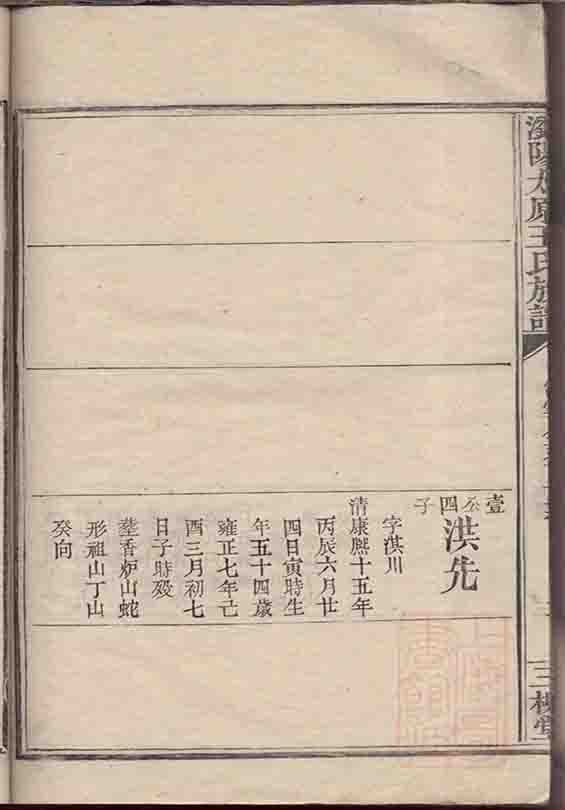 溪陽太原王氏族譜
三槐堂
壹公四子
洪先
字淇川
清康熈十五年
丙辰六月廿
四日寅時生
年五十四歲
雍正七年己
酉三月初七
日子時殁
塟香炉山蛇
形祖山丁山
癸向